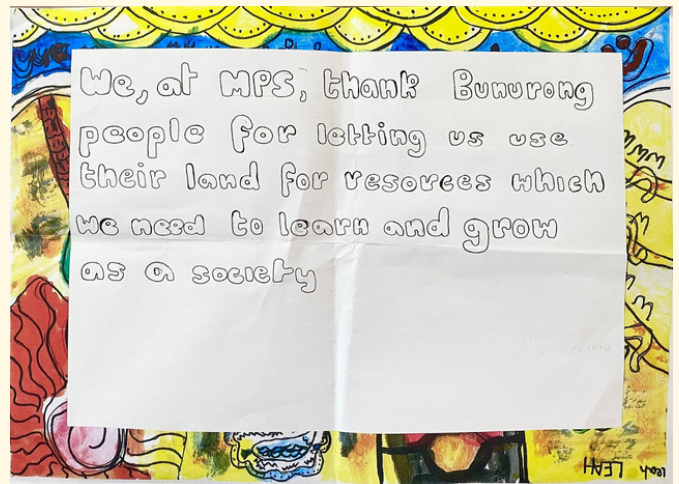 We, at MPS, thank Bunurong
people for letting us use
their land for resorces which
we need to learn and grow
as a society
leah LEAH